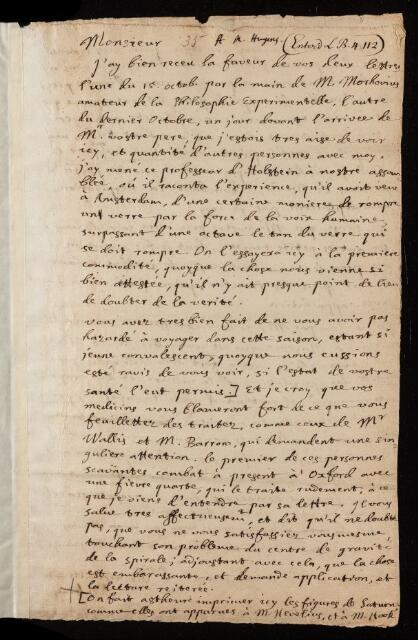 Monsieur 35 A M. Hugens. (Enterd L.B. 4. 112)
J'ay bien receu la faveur de vos deux lettres
l'une du 15 octob. par la main de M. Morhovius
amateur de la Philosophie Experimentelle, l'autre
du dernier Octobre, un jour devant l'arrivee de
M. vostre pere, que j'estois tres aise de voir
icy, et quantité d'autres personnes avec moy.
J'ay mene ce professeur d'Holstein à nostre assem
blée, où il raconta l'experience, qu'il avoit veue
à Amsterdam, d'une certaine maniere de rompre
un verre par la force de la voix humaine
surpassant d'une octave le ton du verre qui
se doit rompre. On l'essayera icy à la premiere
commodité, quoyque la chose nous vienne si
bien attestée, qu'il n'y ait presque point de lieu
de doubter de la verité.
vous avez tres bien fait de ne vous avoir pas
hazardé à voyager dans cette saison, estant si
jeune convalescent, quoyque nous eussions
esté ravis de vous voir, si l'estat de vostre
santé l'eut permis.] Et je croy que vos
medicins vous blameront fort de ce que vous
feuillettez des traitez, comme ceux de Mr
Wallis et M. Barrow, qui demandent une sin
guliere attention. le premier de ces personnes
scavantes combat à present à Oxford avec
une fievre quarte, qui le traite rudement, à ce
que je viens d'entendre par sa lettre. Il vous
salue tres affectueusemt, et dit qu'il ne doubte
pas, que vous ne vous satisfassiez vous mesme,
touchant son probleme du centre de gravité
de la spirale; adjoustant avec cela, que la chose
est embarassante, et demande application, et
la lecture reiterée.
[On fait asthure imprimer icy les figures de Saturn.
comme elles ont apparues à M. Hevelius, et à M. Hook